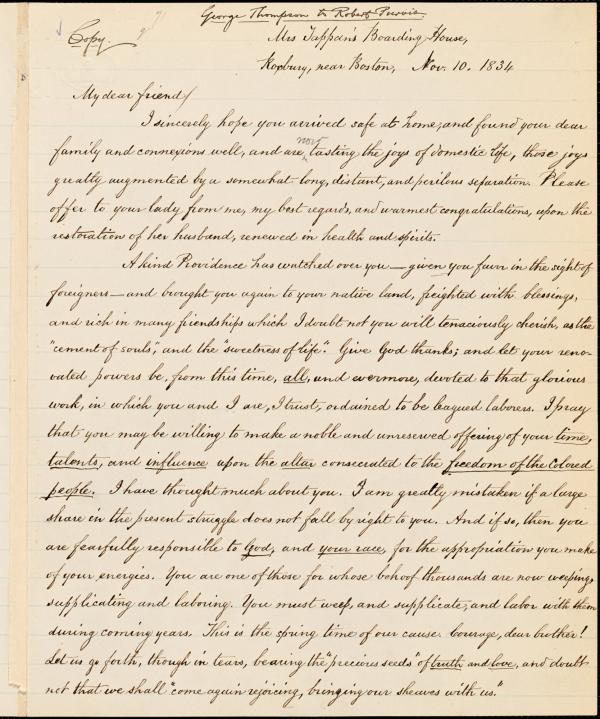 George Thompson to Robert Purvis.
Copy
Mrs Tappan's Boarding House,
Roxbury, near Boston, Nov. 10. 1834
My dear friend/
I sincerely hope you arrived safe at home, and found your dear
family and connexions well, and are now tasting the joys of domestic life, those joys
greatly augmented by a somewhat long, distant, and perilous separation. Please
offer to your lady from me, my best regards, and warmest congratulations, upon the
restoration of her husband, renewed in health and spirits.
A kind Providence has watched over you — given you favor in the sight of
foreigners — and brought you again to your native land, freighted with blessings,
and rich in many friendships which I doubt not you will tenaciously cherish, as the
"cement of souls", and the "sweetness of life". Give God thanks; and let your reno-
vated powers be, from this time, all, and evermore, devoted to that glorious
work, in which you and I are, I trust, ordained to be leagued laborers. I pray
that you may be willing to make a noble and unreserved offering of your time,
talents, and influence upon the altar consecrated to the freedom of the colored
people. I have thought much about you. I am greatly mistaken if a large
share in the present struggle does not fall by right to you. And if so, then you
are fearfully responsible to God, and your race, for the appropriation you make
of your energies. You are one of those for whose behoof thousands are now weeping,
supplicating and laboring. You must weep, and supplicate, and labor with them
during coming years. This is the spring time of our cause. Courage, dear brother!
Let us go forth, though in tears, bearing the "precious seeds" of truth and love, and doubt
not that we shall "come again rejoicing, bringing our sheaves with us."